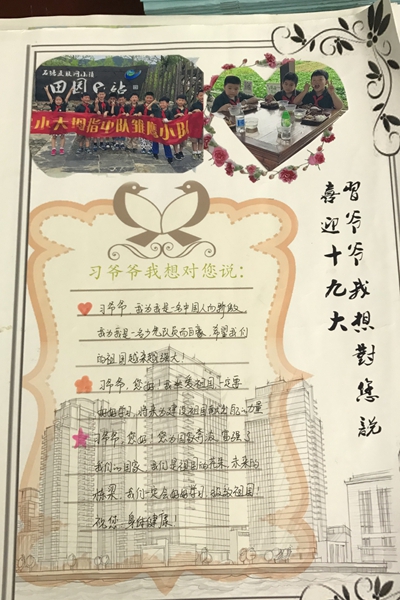 田园口站
小大拇指中队雏鹰小队
喜迎十九大
習爷爷我想對您説
习爷爷我想对您说：
习爷爷，我为我是一名中国人而骄傲，
我为我是一名少先队员而自豪，希望我们
的祖国越来越强大！
习爷爷，您好！我
好好学习，将来为建设祖国献出自己力量
习爷爷，您好！您为国家
我们的国家，我们是祖国的花朵，未来的
栋梁，我们一定会好好学习，报效祖国！
祝您：身体健康